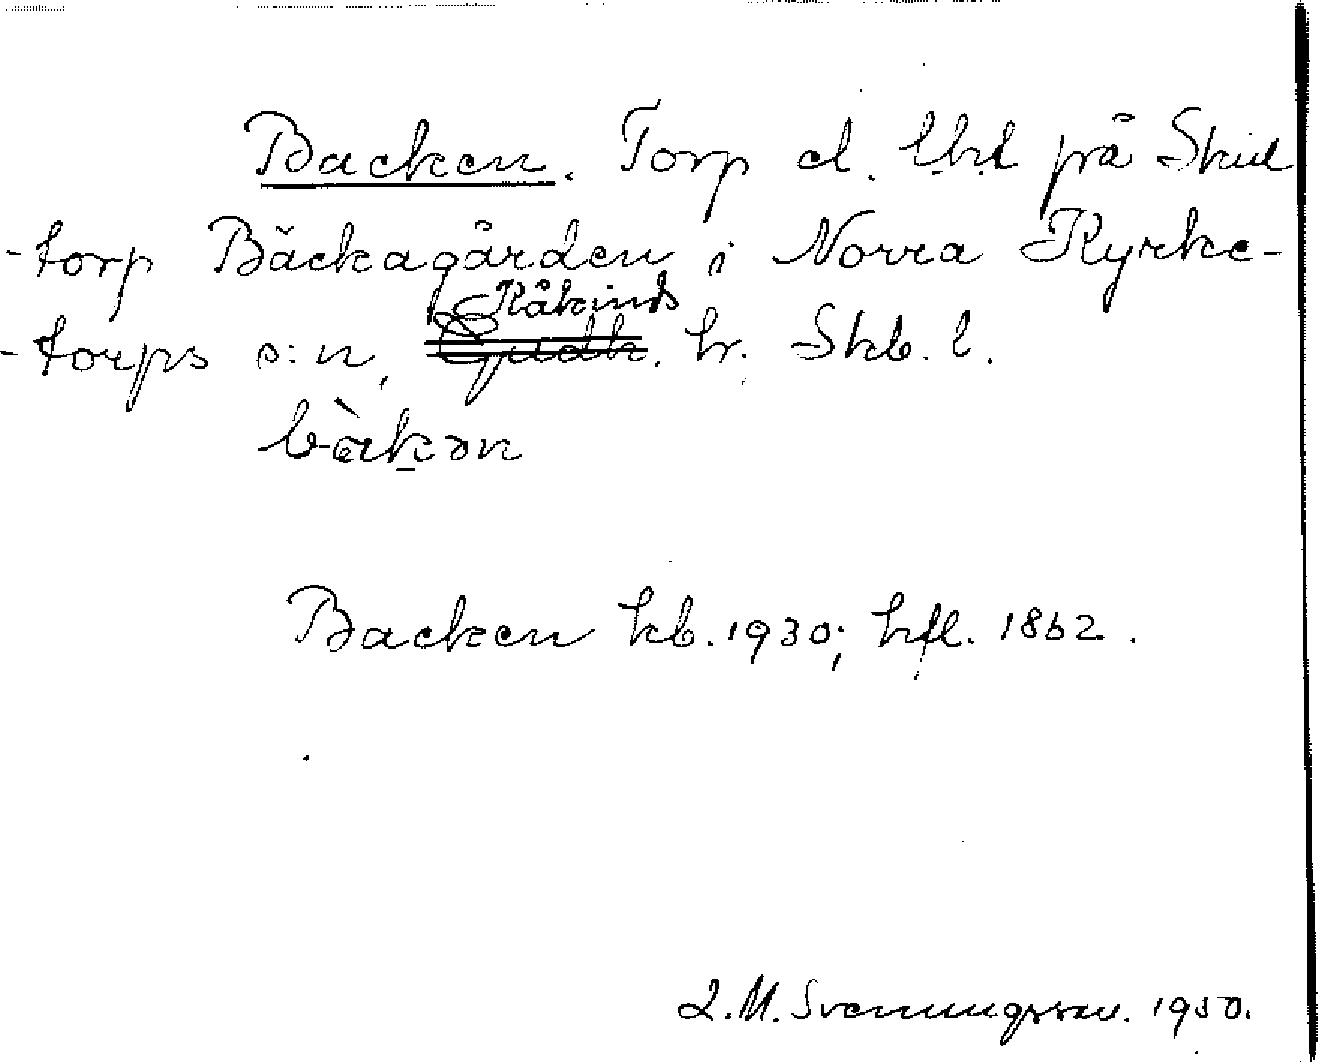 Backen. Torp el. lht på Skul
-torp Bäckagården i Norra Kyrke-
Kåkinds
-torps s:n, Gudh. hr. Skb. l.
bàkən
Backen kb. 1930; hfl. 1862.
L.M. Svenungsson. 1950.